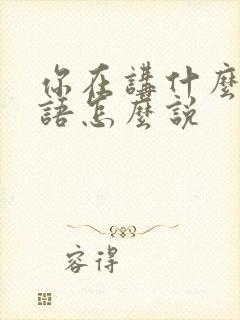 你在講什麼
語怎麼說
容得